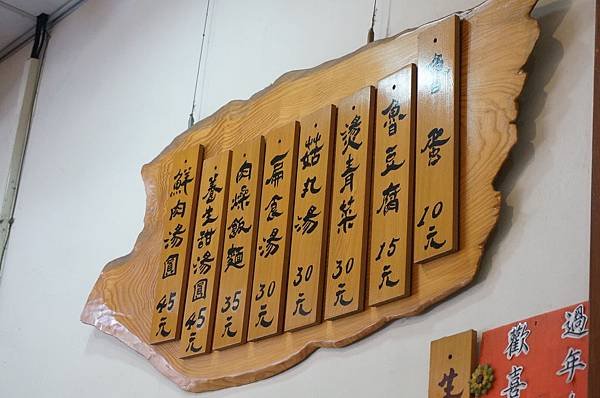 魯蛋 10元
魯豆腐 15元
燙青菜 30元
菇丸湯 30元
扁食湯 30元
肉燥飯麵 35元
養生甜湯圓 45元
鮮肉湯圓 45元
過年
歡喜
生